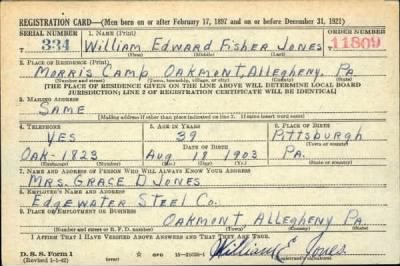 REGISTRATION CARD—(Men born on or after February 17, 1897 and on or before December 31, 1921)
SERIAL NUMBER 1. NAME (Print) ORDER NUMBER
T 334 William Edward Fisher Jones 11809
2. PLACE OF RESIDENCE (Print)
Morris Camp, Oakmont, Allegheny, Pa
[THE PLACE OF RESIDENCE GIVEN ON THE LINE ABOVE WILL DETERMINE LOCAL BOARD
JURISDICTION; LINE 2 OF REGISTRATION CERTIFICATE WILL BE IDENTICAL]
3. MAILING ADDRESS
SAME
[Mailing address if other than place indicated on line 2. If same insert word same]
4. TELEPHONE 5. AGE IN YEARS 6. PLACE OF BIRTH
YES 39 Pittsburgh
DATE OF BIRTH (Town or county)
OAK-1823 Aug 19 1903 Pa.
(Exchange) (Number) (Mo.) (Day) (Yr.) (State or country)
7. NAME AND ADDRESS OF PERSON WHO WILL ALWAYS KNOW YOUR ADDRESS
Mrs. Grace D Jones
8. EMPLOYER'S NAME AND ADDRESS
Edgewater Steel Co.
9. PLACE OF EMPLOYMENT OR BUSINESS
Oakmont Allegheny Pa
(Number and street or R. F. D. number) (Town) (County) (State)
I AFFIRM THAT I HAVE VERIFIED ABOVE ANSWERS AND THAT THEY ARE TRUE.
D. S. S. Form 1 GPO William E. Jones
(Revised 1-1-42) (Registrant's signature)